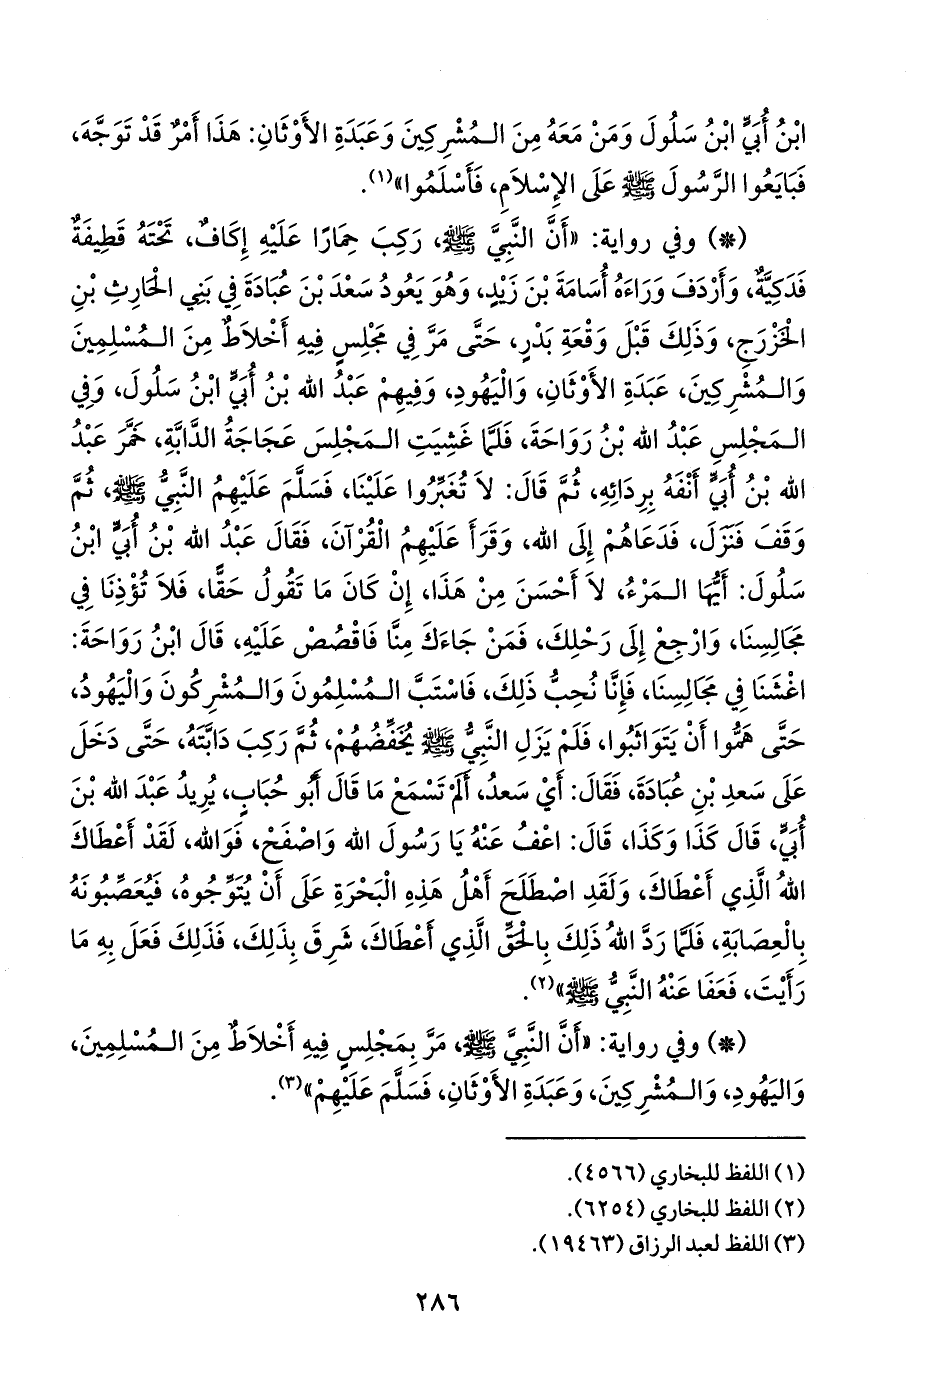 ابْنُ أُبَيٍّ ابْنُ سَلُولَ وَمَنْ مَعَهُ مِنَ الـمُشْرِكِينَ وَعَبَدَةِ الأَوْثَانِ: هَذَا أَمْرٌ قَدْ تَوَجَّهَ،
فَبَايَعُوا الرَّسُولَ ﷺ عَلَى الإِسْلَامِ، فَأَسْلَمُوا»(١).
(*) وفي رواية: «أَنَّ النَّبِيَّ ﷺ، رَكِبَ حِمَارًا عَلَيْهِ إِكَافٌ، تَحْتَهُ قَطِيفَةٌ
فَدَكِيَّةٌ، وَأَرْدَفَ وَرَاءَهُ أُسَامَةَ بْنَ زَيْدٍ، وَهُوَ يَعُودُ سَعْدَ بْنَ عُبَادَةَ فِي بَنِي الحَارِثِ بْنِ
الخَزْرَجِ، وَذَلِكَ قَبْلَ وَقْعَةِ بَدْرٍ، حَتَّى مَرَّ فِي مَجْلِسٍ فِيهِ أَخْلَاطٌ مِنَ الـمُسْلِمِينَ
وَالـمُشْرِكِينَ، عَبَدَةِ الأَوْثَانِ، وَالْيَهُودِ، وَفِيهِمْ عَبْدُ الله بْنُ أُبَيٍّ ابْنُ سَلُولَ، وَفِي
الـمَجْلِسِ عَبْدُ الله بْنُ رَوَاحَةَ، فَلَمَّا غَشِيَتِ الـمَجْلِسَ عَجَاجَةُ الدَّابَّةِ، خَمَّرَ عَبْدُ
الله بْنُ أُبَيٍّ أَنْفَهُ بِرِدَائِهِ، ثُمَّ قَالَ: لَا تُغَبِّرُوا عَلَيْنَا، فَسَلَّمَ عَلَيْهِمُ النَّبِيُّ ﷺ، ثُمَّ
وَقَفَ فَنَزَلَ، فَدَعَاهُمْ إِلَى الله، وَقَرَأَ عَلَيْهِمُ الْقُرْآنَ، فَقَالَ عَبْدُ الله بْنُ أُبَيٍّ ابْنُ
سَلُولَ: أَيُّهَا الـمَرْءُ، لَا أَحْسَنَ مِنْ هَذَا، إِنْ كَانَ مَا تَقُولُ حَقًّا، فَلَا تُؤْذِنَا فِي
مَجَالِسِنَا، وَارْجِعْ إِلَى رَحْلِكَ، فَمَنْ جَاءَكَ مِنَّا فَاقْصُصْ عَلَيْهِ، قَالَ ابْنُ رَوَاحَةَ:
اغْشَنَا فِي مَجَالِسِنَا، فَإِنَّا نُحِبُّ ذَلِكَ، فَاسْتَبَّ الـمُسْلِمُونَ وَالـمُشْرِكُونَ وَالْيَهُودُ،
حَتَّى هَمُّوا أَنْ يَتَوَاثَبُوا، فَلَمْ يَزَلِ النَّبِيُّ ﷺ يُخَفِّضُهُمْ، ثُمَّ رَكِبَ دَابَّتَهُ، حَتَّى دَخَلَ
عَلَى سَعدِ بْنِ عُبَادَةَ، فَقَالَ: أَيْ سَعدُ، أَلَمْ تَسْمَعْ مَا قَالَ أَبُو حُبَابٍ، يُرِيدُ عَبْدَ الله بْنَ
أُبَيٍّ، قَالَ كَذَا وَكَذَا، قَالَ: اعْفُ عَنْهُ يَا رَسُولَ الله وَاصْفَحْ، فَوَالله، لَقَدْ أَعْطَاكَ
اللهُ الَّذِي أَعْطَاكَ، وَلَقَدِ اصْطَلَحَ أَهْلُ هَذِهِ الْبَحْرَةِ عَلَى أَنْ يُتَوِّجُوهُ، فَيُعَصِّبُونَهُ
بِالْعِصَابَةِ، فَلَمَّا رَدَّ اللهُ ذَلِكَ بِالْحَقِّ الَّذِي أَعْطَاكَ، شَرِقَ بِذَلِكَ، فَذَلِكَ فَعَلَ بِهِ مَا
رَأَيْتَ، فَعَفَا عَنْهُ النَّبِيُّ ﷺ»(٢).
(*) وفي رواية: «أَنَّ النَّبِيَّ ﷺ، مَرَّ بِمَجْلِسٍ فِيهِ أَخْلَاطٌ مِنَ الـمُسْلِمِينَ،
وَاليَهُودِ، وَالـمُشْرِكِينَ، وَعَبَدَةِ الأَوْثَانِ، فَسَلَّمَ عَلَيْهِمْ»(٣).
(١) اللفظ للبخاري (٤٥٦٦).
(٢) اللفظ للبخاري (٦٢٥٤).
(٣) اللفظ لعبد الرزاق (١٩٤٦٣).
٢٨٦